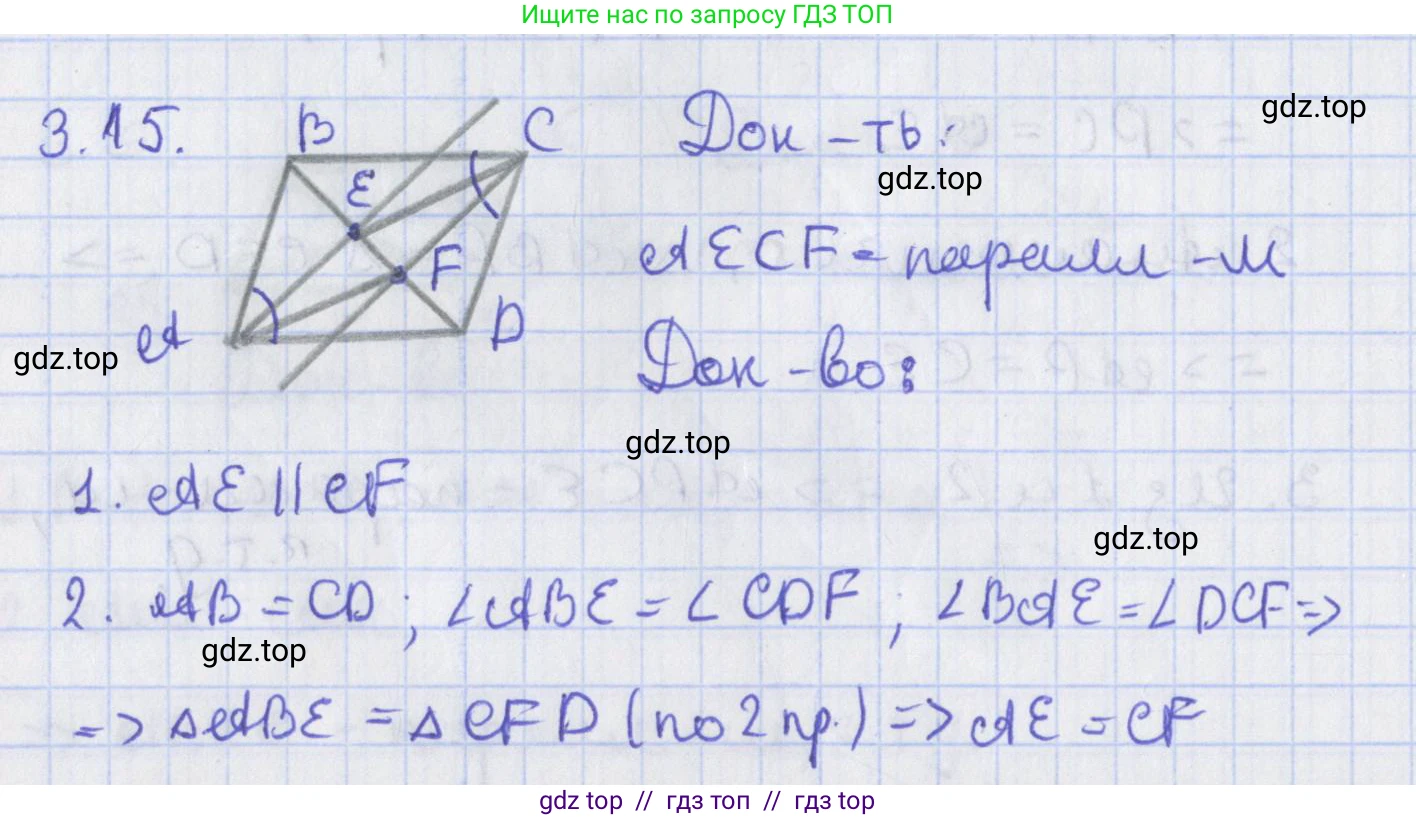 Ищите нас по запросу ГДЗ ТОП
3.15.
B
C
E
F
A
D
Док-ть:
gdz.top
gdz.top
AECF - паралл-м
gdz.top
Док-во:
gdz.top
1. AE || CF
gdz.top
2. AB = CD; ∠ABE = ∠CDF; ∠BAE = ∠DCF =>
gdz.top
=> △ABE = △CFD (по 2 пр.) => AE = CF
gdz top // гдз топ // gdz top